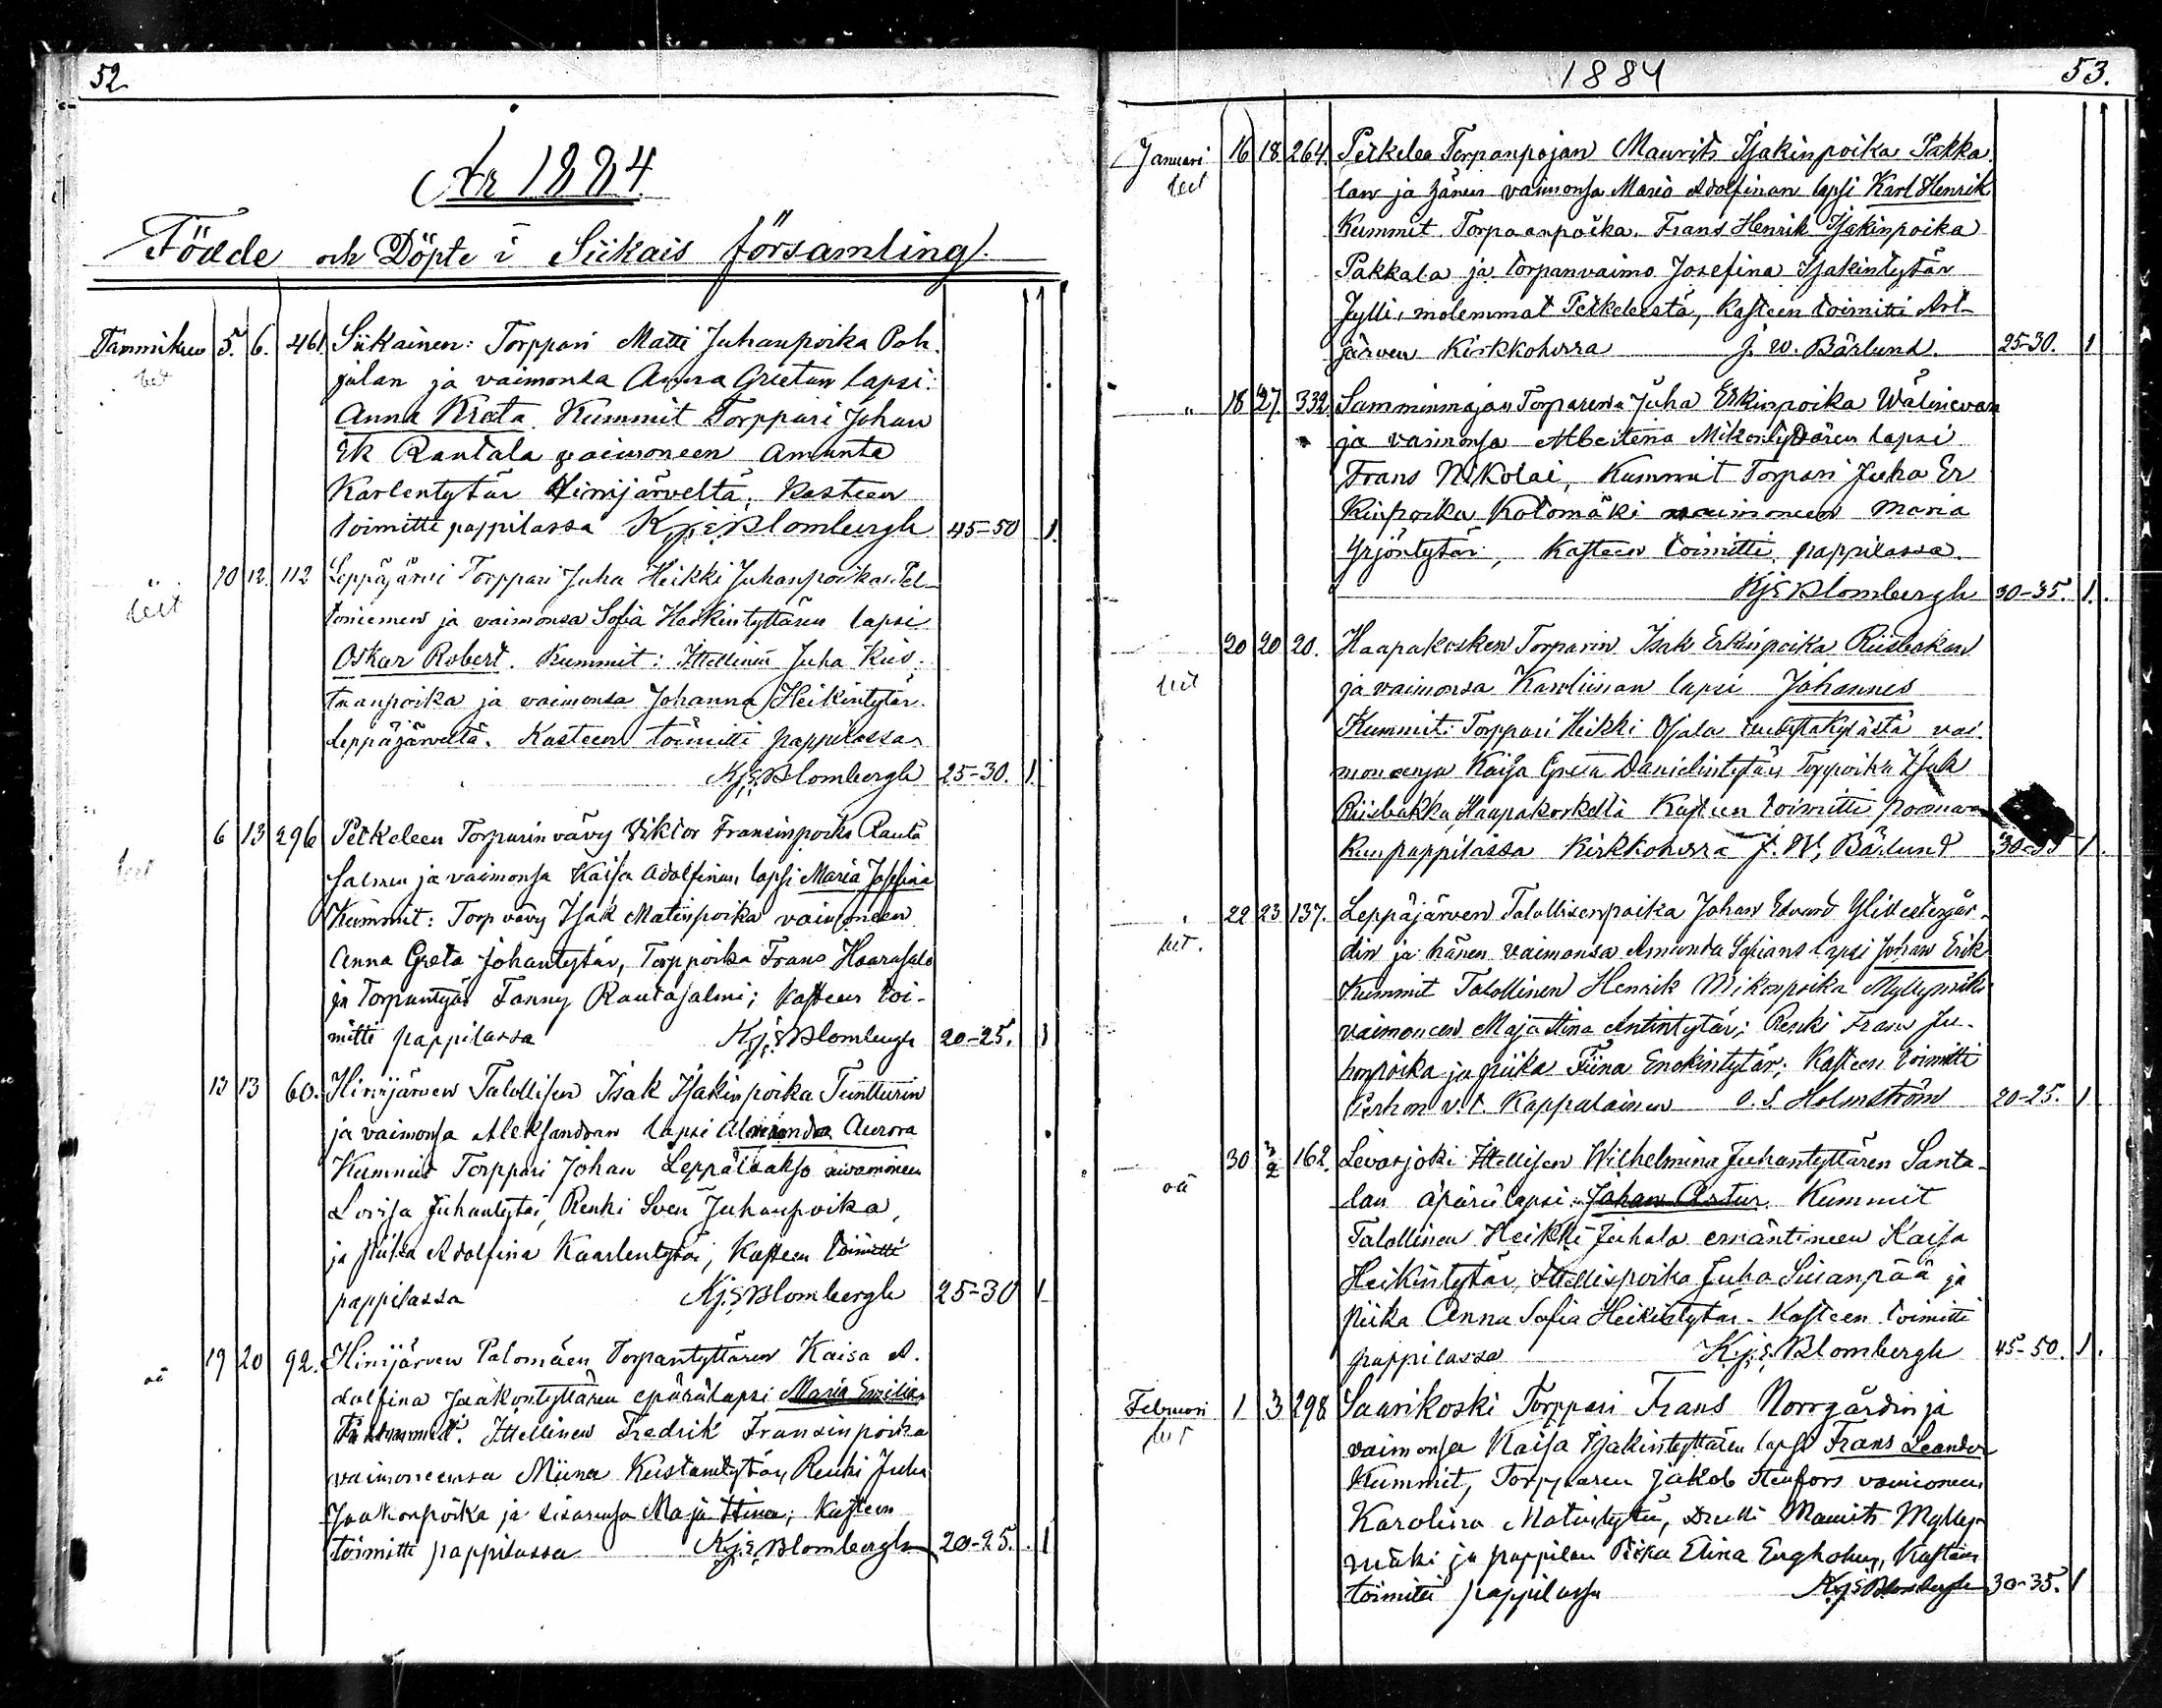 52
År 1884.
Födde och Döpte i Siikais församling.
Tammikuu 5. 6. 461. Siikainen: Torppari Matti Juhanpoika Poh-
jalan ja vaimonsa Anna Gretan lapsi:
Anna Kreta. Kummit Torppari Johan
Ek Rautala vaimoneen Amanta
Karlentytär Hirvijärveltä; Kasteen
toimitti pappilassa Kj. E. Blombergh 45-50 1.
" 10 12. 112 Leppäjärvi Torppari Juha Heikki Juhanpoika Pel-
toniemen ja vaimonsa Sofia Heikintyttären lapsi
Oskar Robert. Kummit: Ittellinen Juha Kus-
taanpoika ja vaimonsa Johanna Heikintytär
Leppäjärveltä. Kasteen toimitti pappilassa
Kj. E. Blombergh 25-30. 1.
6 13 296 Petkeleen Torparin vävy Viktor Fransinpoika Rauta
salmen ja vaimonsa Kaisa Adolfinan lapsi Maria Josefina
Kummit: Torp vävy Isak Matinpoika vaimoneen
Anna Greta Johantytär, Torppoika Frans Haarasalo
ja Torpantytär Fanny Rautasalmi; Kasteen toi-
mitti pappilassa Kj. E. Blombergh 20-25. 1
13 13 60. Hirvijärven Talollisen Isak Isakinpoika Tuntturin
ja vaimonsa Aleksandran lapsi Aurora
Kummit Torppari Johan Leppälaakso
Lovisa Juhantytär, Renki Sven Juhanpoika,
ja piika Adolfina Kaarlentytär; Kasteen toimitti
pappilassa Kj. E. Blombergh 25-30 1
19 20 92. Hirvijärven Palomäen Torpantyttären Kaisa A-
dolfina Jaakontyttären epärälapsi Maria Emilia
Kummit. Ittellinen Fredrik Fransinpoika
vaimoneensa Miina Kustantytär, Renki Juha
Jaakonpoika ja sisarensa Maja Stina; Kasteen
toimitti pappilassa Kj. E. Blombergh 20-25. 1
1884 53.
Januari 16 18 264. Petkelee Torpanpojan Maurits Isakinpoika Pakka
lan ja hänen vaimonsa Maria Adolfinan lapsi Karl Henrik
Kummit. Torpanpoika. Frans Henrik Isakinpoika
Pakkala ja torpanvaimo Josefina Isakintytär
Jylli, molemmat Petkeleestä, Kasteen toimitti
järven Kirkkoherra J. W. Bärlund. 25-30. 1
" 18 27 332. Samminmajan Torparin Juha Erkinpoika
ja vaimonsa Albertina Mikontyttären lapsi
Frans Nikolai, Kummit Torpari Juha Er
kinpoika Kotomäki vaimoneen Maria
Yrjöntytär, Kasteen toimitti pappilassa.
Kj. E. Blombergh 30-35. 1.
20 20 20. Haapakosken Torparin Isak Erkinpoika Riisbakan
ja vaimonsa Karoliinan lapsi Johannes
Kummit: Torppari Heikki Ojala vai-
monensa Kaisa Greta Danielintytär Torppoika Isak
Riisbakka, Haapakoskelta Kasteen toimitti
pappilassa Kirkkoherra J. W. Bärlund 30-35 1.
" 22 23 137. Leppäjärven Talollisenpoika Johan Edvard
din ja hänen vaimonsa Amanda Sofians lapsi Johan Erik
Kummit Talollinen Henrik Mikonpoika Myllymäki
vaimoneen Maja Stina Antintytär; Renki Frans Ju-
honpoika ja piika Fiina Enokintytär; Kasteen toimitti
Perhon v.t. Kappalainen O. S. Holmström 20-25. 1
30 3/2 162. Levasjoki Ittellisen Wilhelmina Juhantyttären Santa-
lan äpärälapsi: Johan Artur. Kummit
Talollinen Heikki Juhala emäntineen Kaisa
Heikintytär, Ittellispoika Juha Susanpää ja
piika Anna Sofia Heikintytär. Kasteen toimitti
pappilassa Kj. E. Blombergh 45-50. 1.
Februari 1 3 298 Saarikoski Torppari Frans Norrgårdin ja
vaimonsa Kaisa Isakintyttären lapsi Frans Leander
Kummit, Torpparen Jakob Stenfors vaimoneen
Karolina Matintytär, Maurits Mylly-
mäki ja pappilan Piika Elina Engholm, Kasteen
toimitti pappilassa Kj. E. Blombergh 30-35. 1